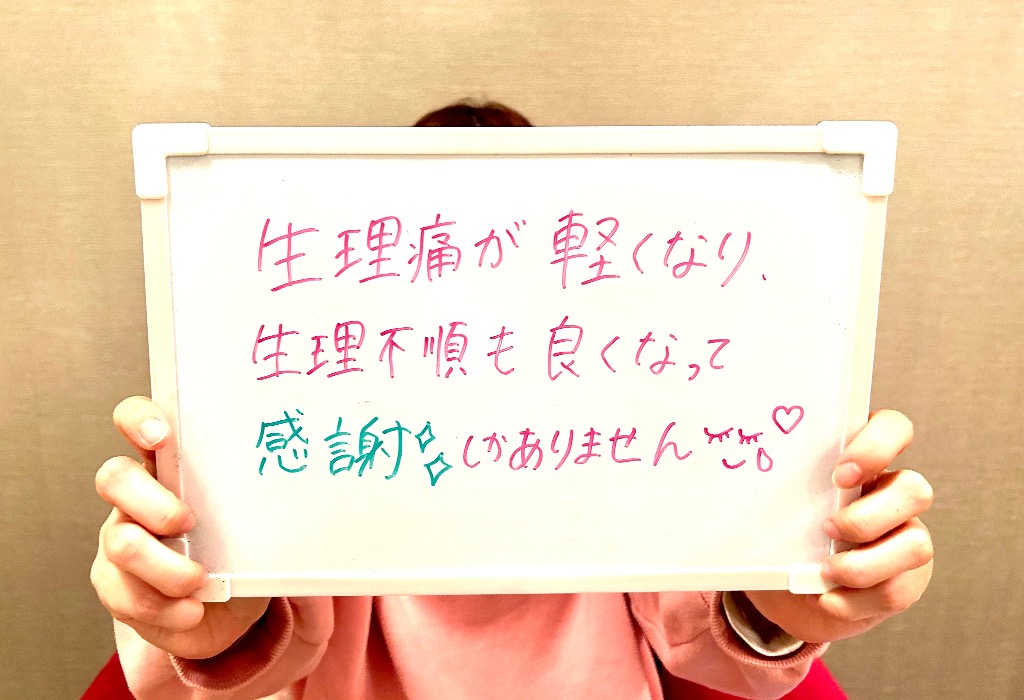 生理痛が軽くなり、
生理不順も良くなって
感謝しかありません